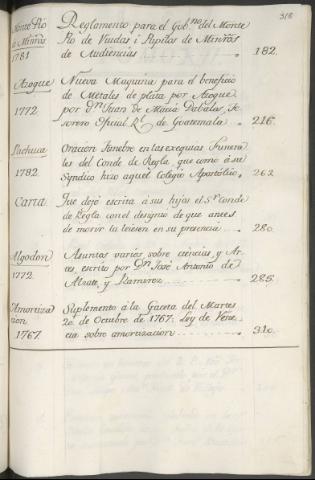 318
Monte Pio
de Minros
1781
Reglamento para el Gobno. del Monte
Pio de Viudas i Pupilos de Minros
de Audiencias 182.
Azogue
1772.
Nueva Maquina para el beneficio
de Metales de plata por Azogue
por Dn. Juan de
sorero Oficial Rl. de Guatemala 216.
Pachuca
1782.
Oracion funebre en las exequias funera-
les del Conde de Regla, que como á su
Syndico hizo aquel Colegio Apostolico 262
Carta.
Que dejó escrita á sus hijos el Sr. Conde
de Regla con el designio de que antes
de morir la leiesen en su presencia 280.
Algodon
1772.
Asuntos varios sobre ciencias, y Ar-
tes escrito por Dn. José Antonio de
Alzate, y Ramirez 285.
Amortiza
cion
1767.
Suplemento á la Gaceta del Martes
20. de Octubre de 1767; Ley de Vene-
cia sobre amortizacion 310.